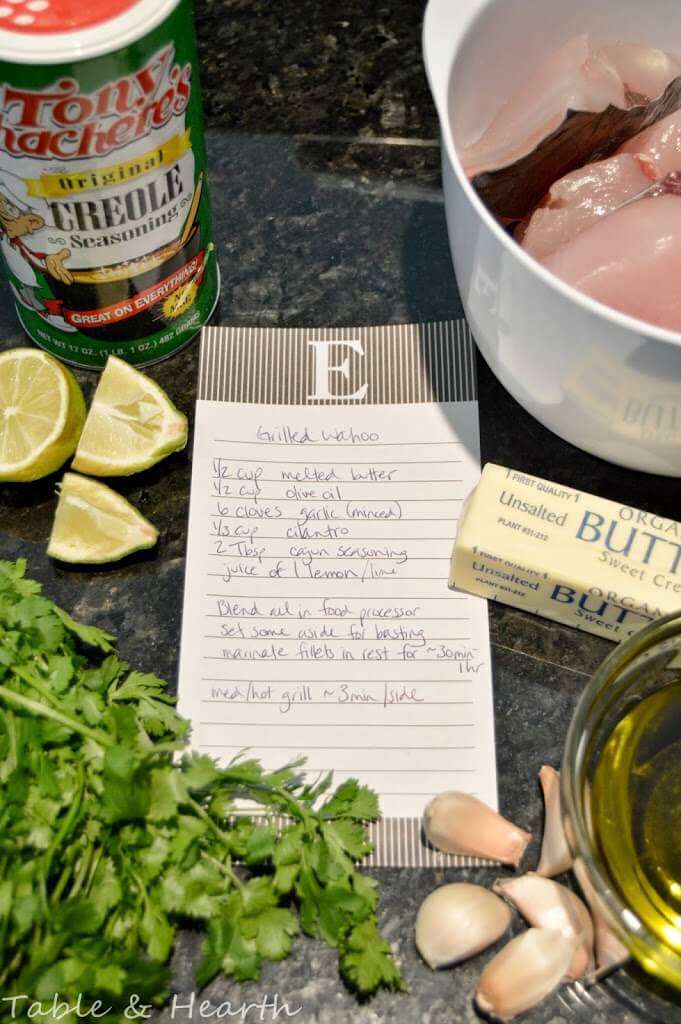 Tony
Chachere's
Original
CREOLE
Seasoning
GREAT ON EVERYTHING!
NET WT 17 OZ. (1 LB. 1 OZ.) 482 GRAMS
E
Grilled Wahoo
1/2 cup melted butter
1/2 cup olive oil
6 cloves garlic (minced)
1/3 cup cilantro
2 Tbsp cajun seasoning
juice of 1 lemon/lime
Blend all in food processor
set some aside for basting
marinate fillets in rest for ~30min-
1hr
med/hot grill ~3min/side
1 FIRST QUALITY 1
Unsalted
PLANT #31-212
ORGA
BUTT
Sweet Cre
1 FIRST QUALITY 1
Unsalted
PLANT #31-212
ORGAN
BUTT
Sweet C
Table & Hearth